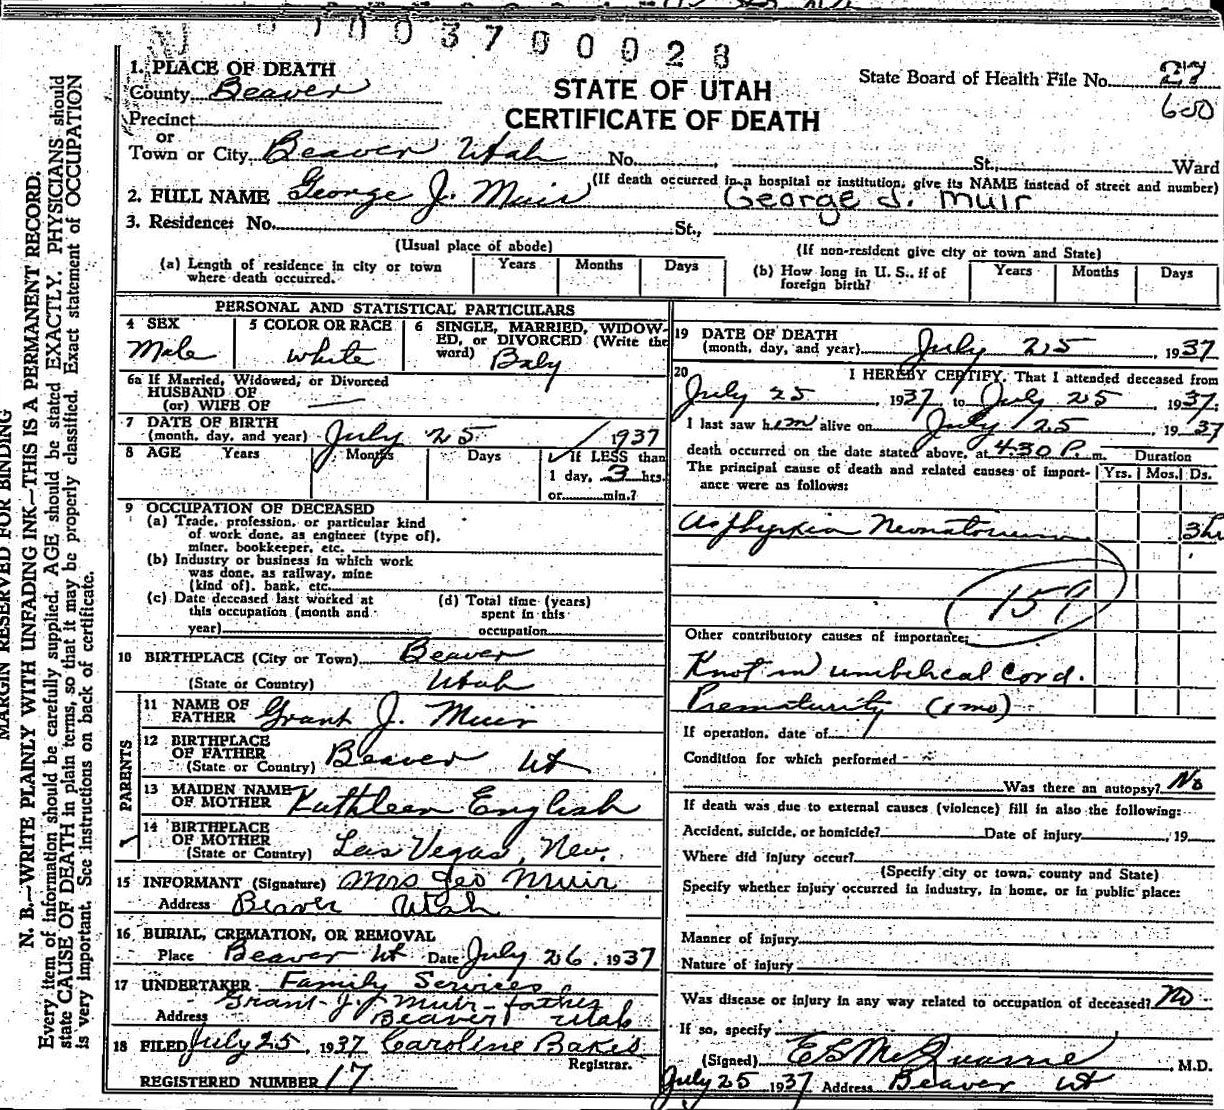 0 0 3 7 0 0 0 2 8
1. PLACE OF DEATH
County Beaver
Precinct
or
Town or City Beaver Utah No. St., Ward
STATE OF UTAH
CERTIFICATE OF DEATH
State Board of Health File No. 27
600
(If death occurred in a hospital or institution, give its NAME instead of street and number)
2. FULL NAME George J. Muir George J. Muir
3. Residence: No. St.,
(Usual place of abode) (If non-resident give city or town and State)
(a) Length of residence in city or town where death occurred. Years Months Days
(b) How long in U. S., if of foreign birth? Years Months Days
PERSONAL AND STATISTICAL PARTICULARS
4 SEX Male
5 COLOR OR RACE white
6 SINGLE, MARRIED, WIDOWED, or DIVORCED (Write the word) Baby
6a If Married, Widowed, or Divorced
HUSBAND OF
(or) WIFE OF
7 DATE OF BIRTH
(month, day, and year) July 25 1937
8 AGE Years Months Days If LESS than
1 day, 3 hrs.
or min.?
9 OCCUPATION OF DECEASED
(a) Trade, profession, or particular kind
of work done, as engineer (type of),
miner, bookkeeper, etc.
(b) Industry or business in which work
was done, as railway, mine
(kind of), bank, etc.
(c) Date deceased last worked at
this occupation (month and
year)
(d) Total time (years)
spent in this
occupation
10 BIRTHPLACE (City or Town) Beaver
(State or Country) Utah
PARENTS
11 NAME OF
FATHER Grant J. Muir
12 BIRTHPLACE
OF FATHER Beaver Ut
(State or Country)
13 MAIDEN NAME
OF MOTHER Kathleen English
14 BIRTHPLACE
OF MOTHER
(State or Country) Las Vegas, Nev.
15 INFORMANT (Signature) Mrs Geo Muir
Address Beaver Utah
16 BURIAL, CREMATION, OR REMOVAL
Place Beaver Ut Date July 26, 1937
17 UNDERTAKER Family Services
Grant J. Muir - father
Address Beaver Utah
18 FILED July 25, 1937 Caroline Bakes
Registrar.
REGISTERED NUMBER 17
19 DATE OF DEATH
(month, day, and year) July 25, 1937
20 I HEREBY CERTIFY, That I attended deceased from
July 25, 1937, to July 25, 1937;
I last saw him alive on July 25, 1937
death occurred on the date stated above, at 4:30 P. m. Duration
The principal cause of death and related causes of importance were as follows: Yrs. Mos. Ds.
Asphyxia Neonatorum 3 hr
159
Other contributory causes of importance:
Knot in umbilical cord.
Prematurity
If operation, date of
Condition for which performed
Was there an autopsy? No
If death was due to external causes (violence) fill in also the following:
Accident, suicide, or homicide? Date of injury , 19
Where did injury occur?
(Specify city or town, county and State)
Specify whether injury occurred in industry, in home, or in public place:
Manner of injury
Nature of injury
Was disease or injury in any way related to occupation of deceased? No
If so, specify
(Signed) , M.D.
July 25 1937 Address Beaver Ut
MARGIN RESERVED FOR BINDING
N. B.—WRITE PLAINLY WITH UNFADING INK—THIS IS A PERMANENT RECORD.
Every item of information should be carefully supplied. AGE should be stated EXACTLY. PHYSICIANS should
state CAUSE OF DEATH in plain terms, so that it may be properly classified. Exact statement of OCCUPATION
is very important. See instructions on back of certificate.